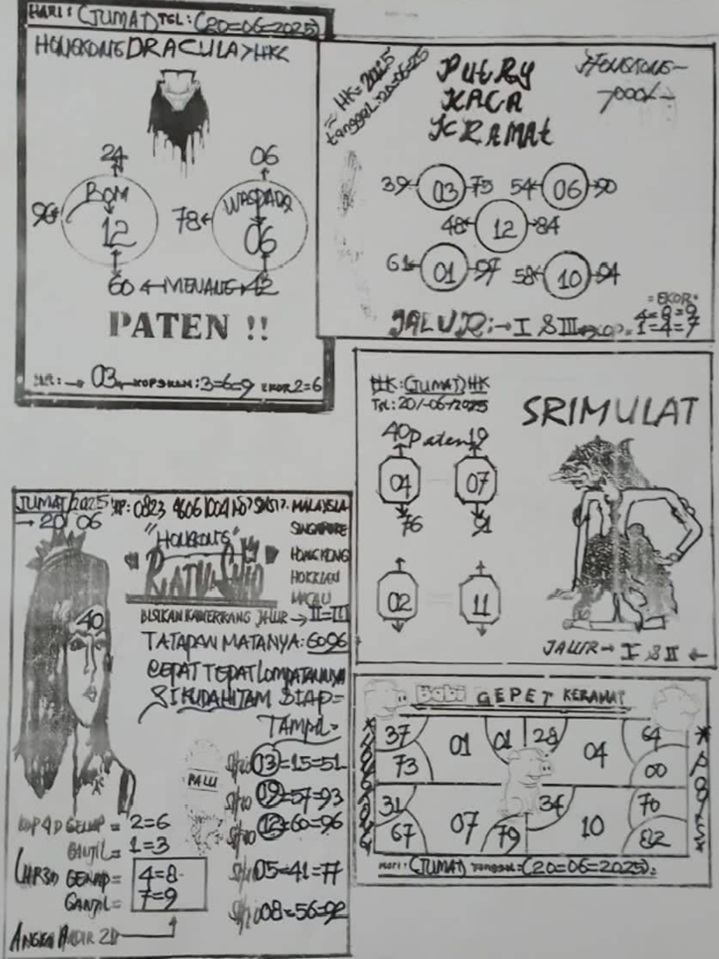 HARI: (JUMAT) TGL: (20=06=2025)
HONGKONG DRACULA > HK<
24
06
BOM
WASPADA
96
12
78
06
60 ← MENANG → 42
PATEN !!
03 KOP3KAN: 3=6=9 EKOR 2=6
= HK=2025
tanggal=20=06=25
PUTRY
KACA
KRAMAT
39 03 75 54 06 90
48 12 84
61 01 97 58 10 94
=EKOR=
JALUR: → I & II
1=4=7
HK: (JUMAT) HK
TGL: 20/-06-/2025
SRIMULAT
40 Paten 19
04 07
76 91
02 11
JALUR → I & II ←
JUMAT/2025 HP: 0823 MALAYSIA
→ 20 06
SINGAPURE
"HONGKONG"
HONGKONG
"RATU SHIO"
HOKKIAN
MACAU
40
JALUR → II=III
TATAPAN MATANYA: 6096
CEPAT TEPAT LOMPATANNYA
SI KUDA HITAM SIAP=
TAMPIL=
Shio 03=15=51
PALU
Shio 09=57=93
Shio 12=60=96
Shio 05=41=77
Shio 08=56=92
KOP 4D GENAP = 2=6
GANJIL = 1=3
GENAP= 4=8
GANJIL= 7=9
ANGKA AKHIR 2D
Babi GEPET KERAMAT
37 01 01 28 04 64
73 00
31 34 70
67 07 79 10 82
HARI: (JUMAT) TANGGAL: (20=06=2025).